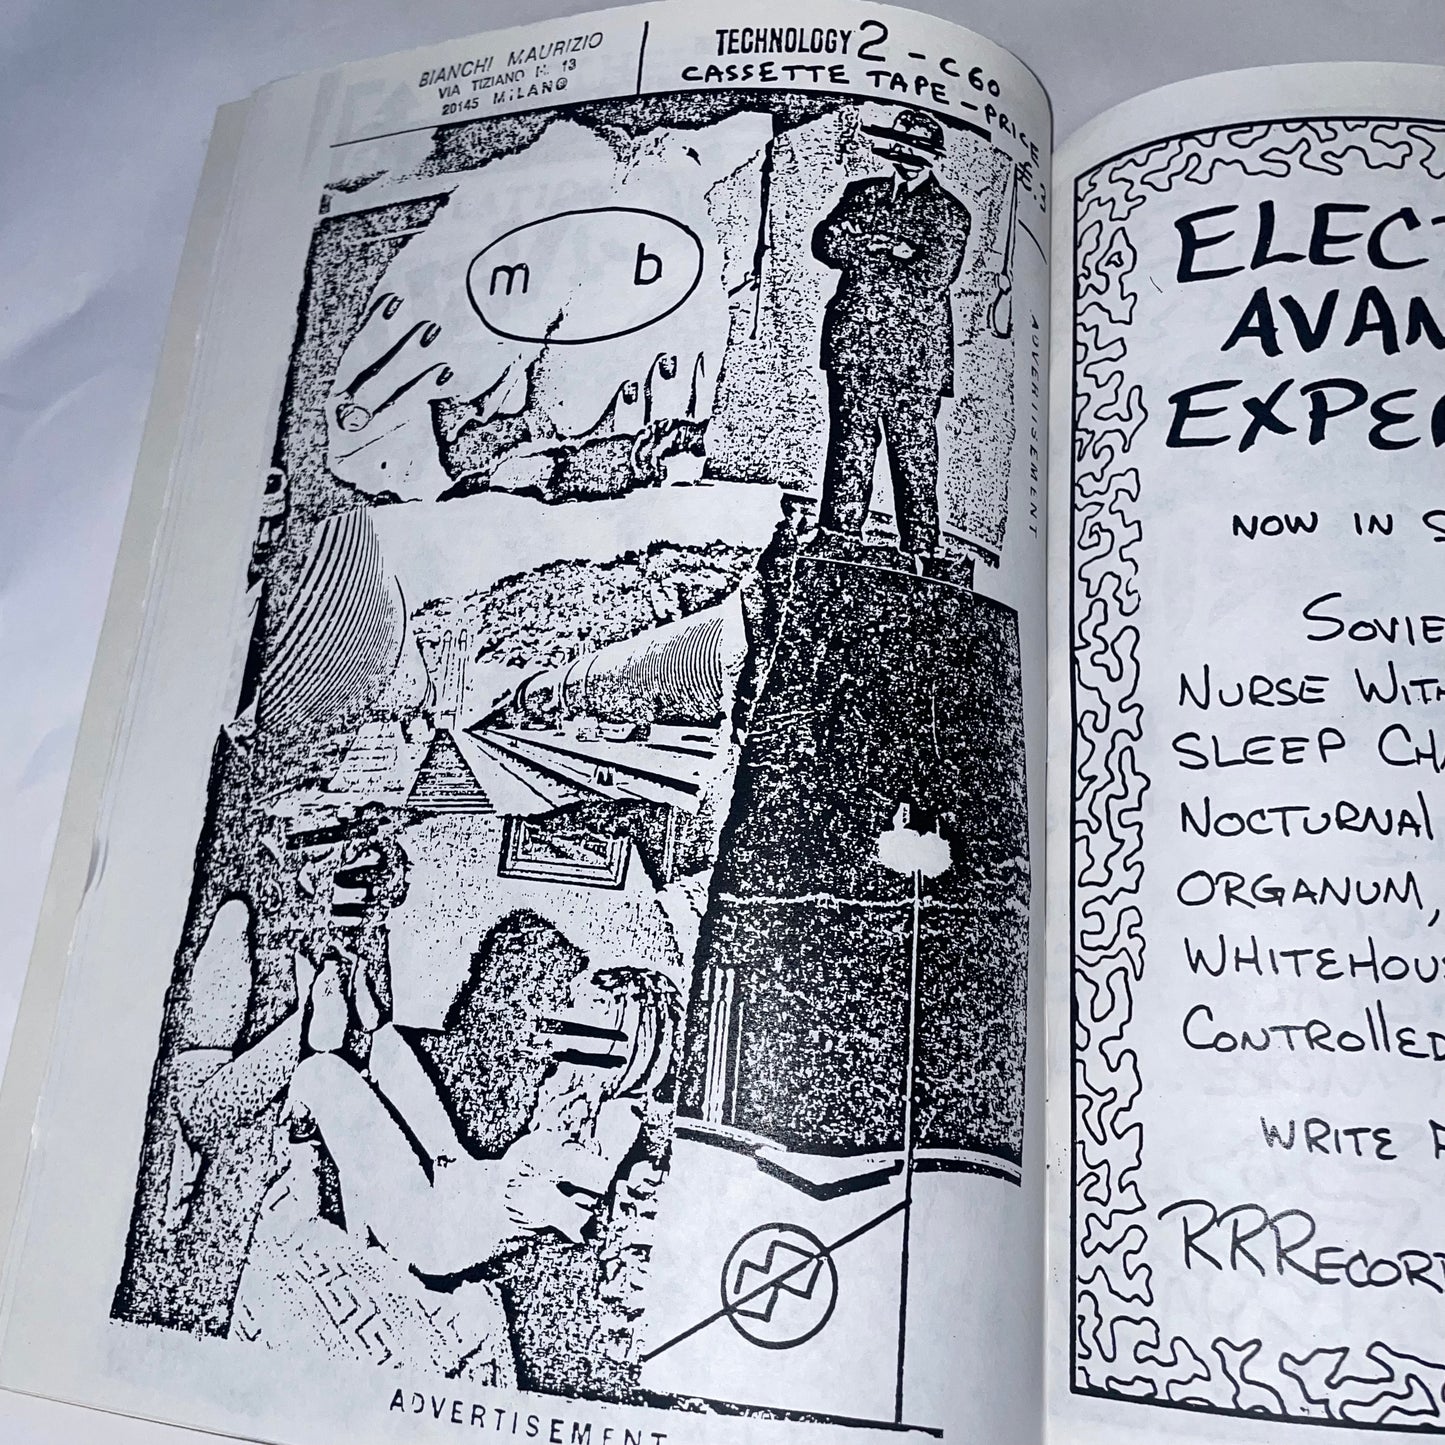 BIANCHI MAURIZIO
VIA TIZIANO N. 13
20145 MiLANO
TECHNOLOGY 2 - C60
CASSETTE TAPE - PRICE
m b
ADVERTISEMENT
ADVERTISEMENT
ELECT
AVAN
EXPER
NOW IN S
SOVIE
NURSE WITH
SLEEP CHA
NOCTURNAl
ORGANUM,
WHITEHOUS
CONTROllED
WRITE
RRRECOR